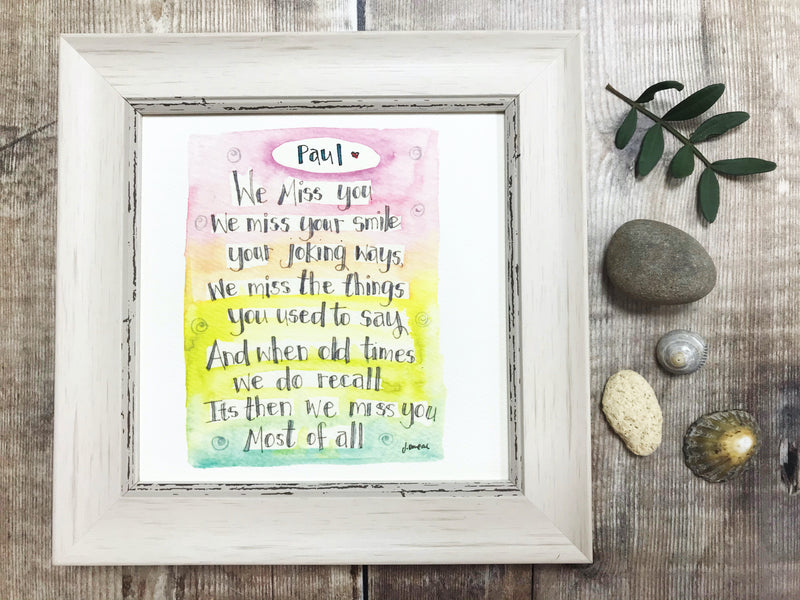 Paul
We Miss you
We miss your smile
your joking ways,
We miss the things
you used to say
And when old times
we do recall
Its then we miss you
Most of all